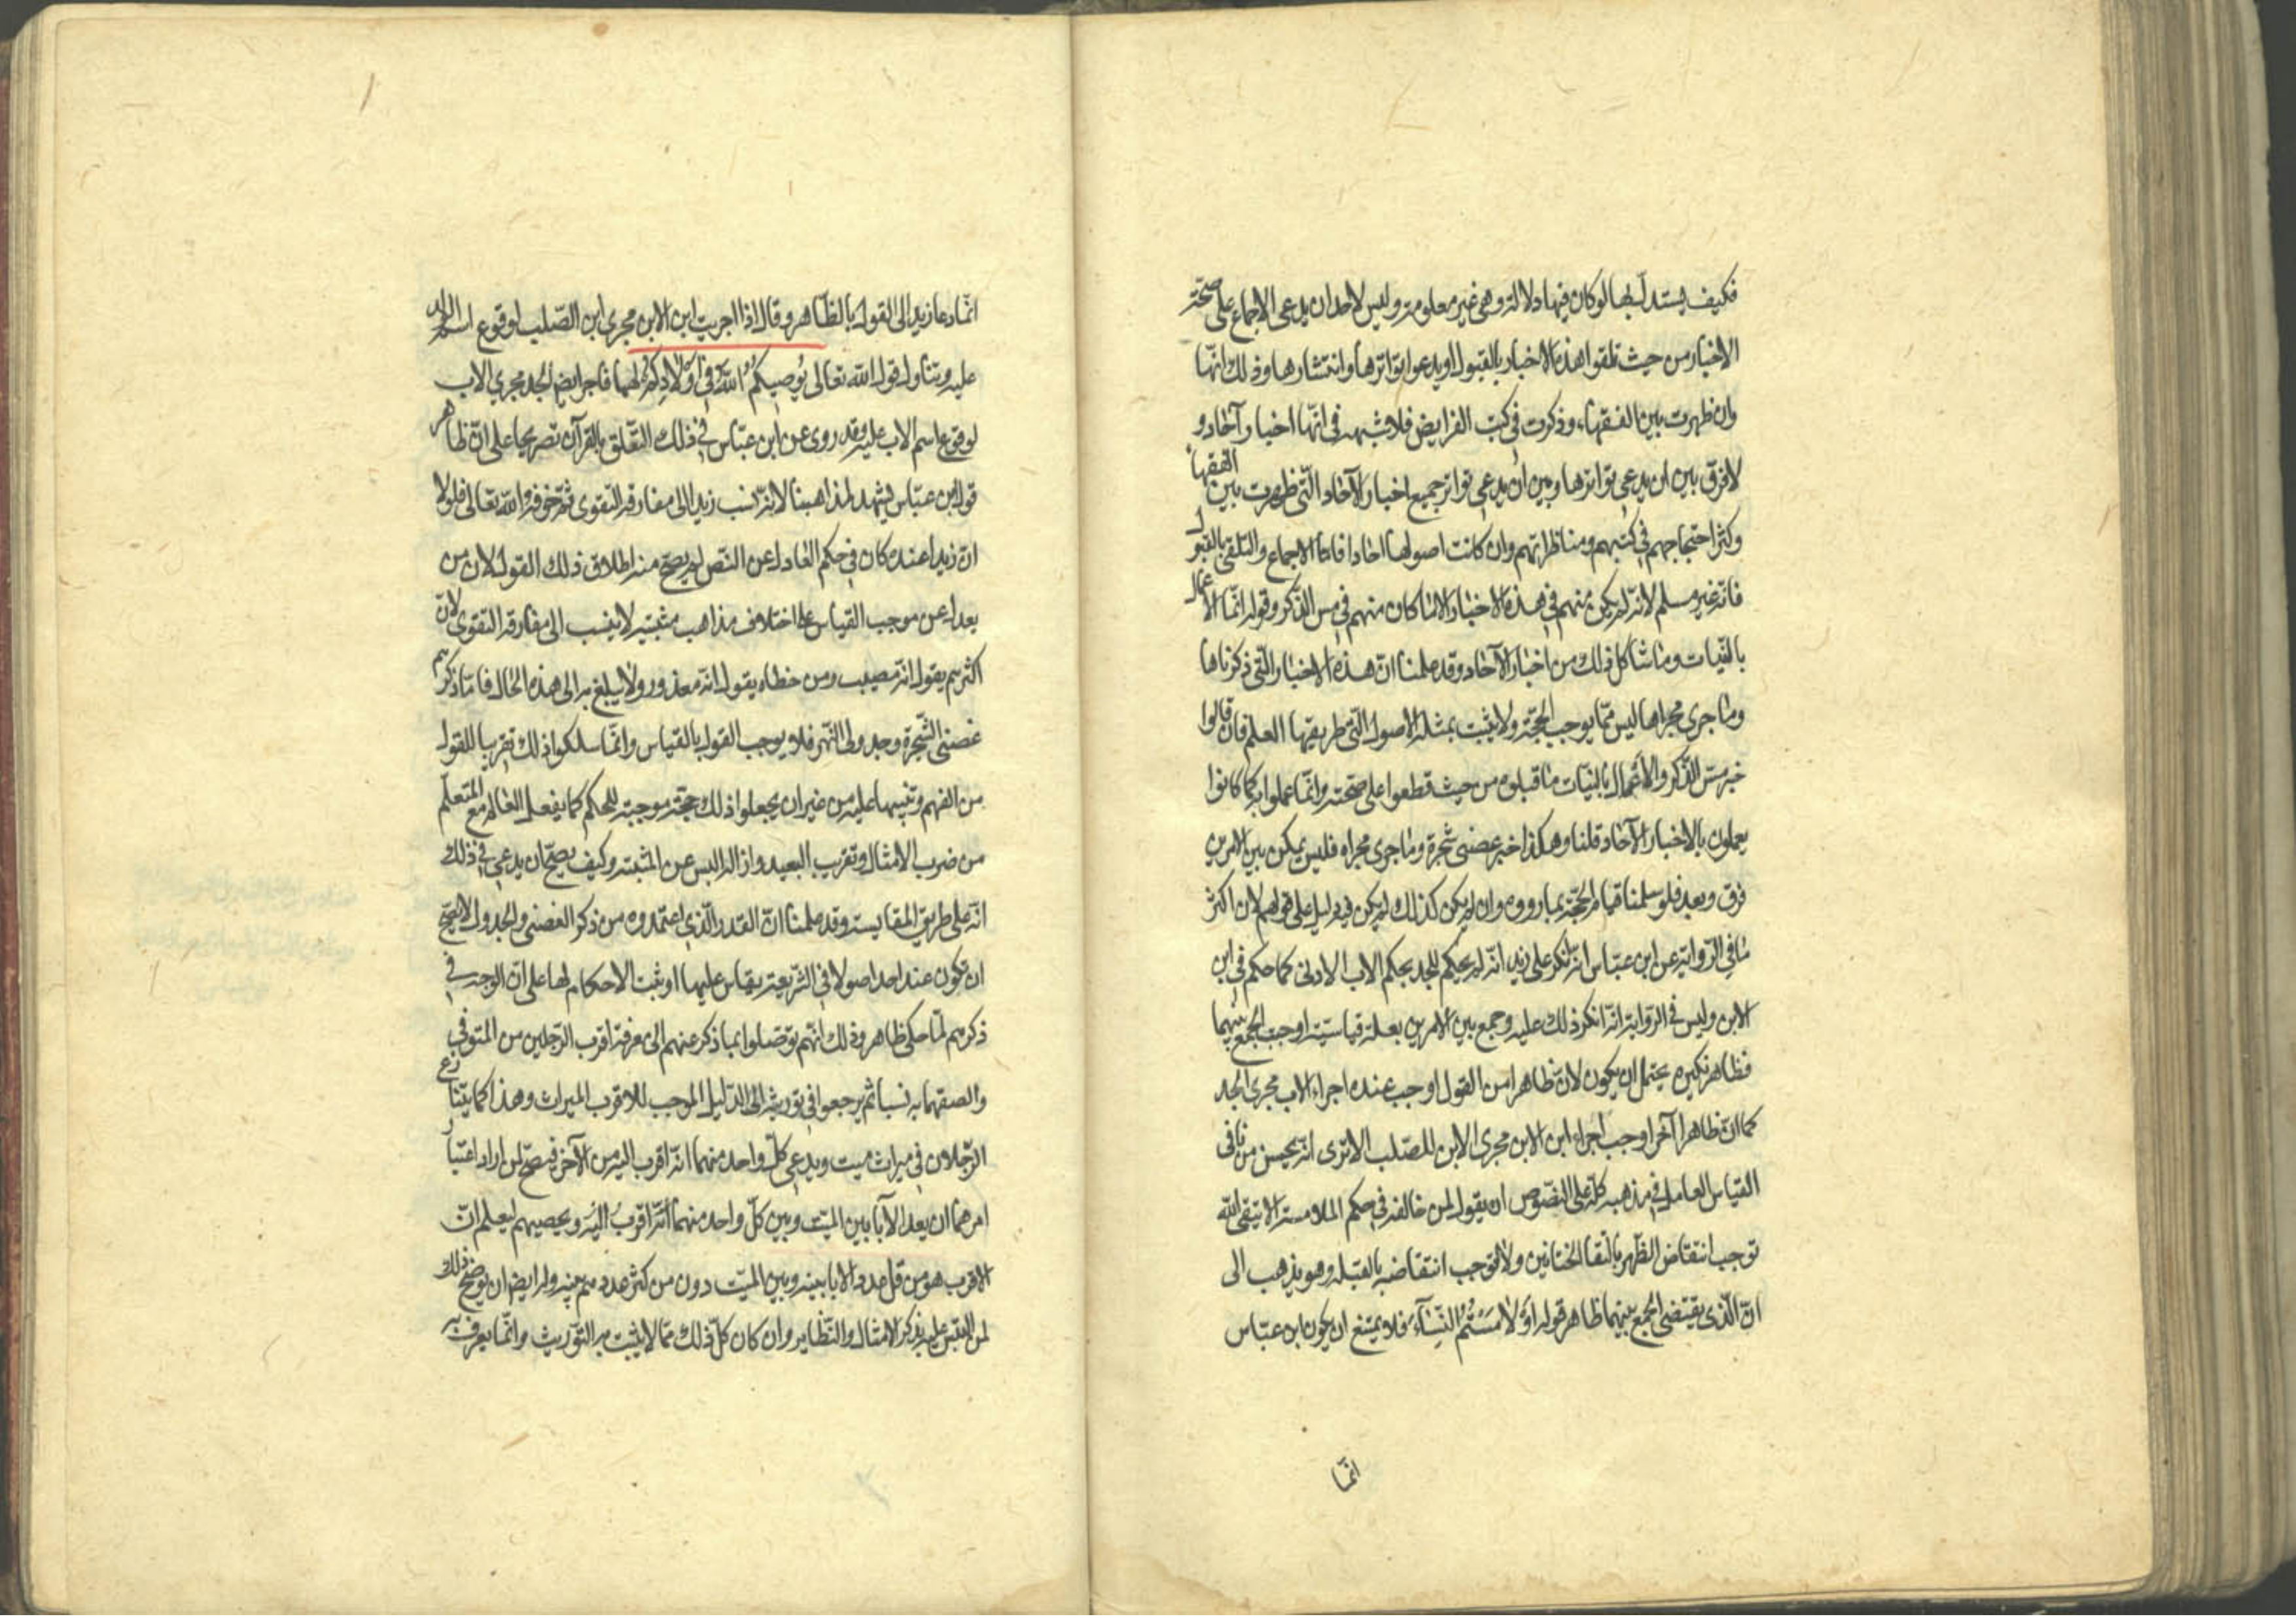 فكيف يستدل بها لو كان فيها دلالة وهى غير معلومة وليس لاحد ان يدعى الاجماع على صحة
الاخبار من حيث تلقوا هذه الاخبار بالقبول او يدعوا تواترها وانتشارها وذلك انها
وان ظهرت بين الفقهاء وذكرت في كتب الفرايض فلا شبهه فى انها اخبار آحاد و
لا فرق بين ان يدعى تواترها وبين ان يدعى تواتر جميع اخبار الآحاد التى ظهرت بين الفقهاء
وكثر احتجاجهم في كتبهم ومناظراتهم وان كانت اصولها احادا فاما الاجماع والتلقى بالقبول
فانه غير مسلم لانه لم يكن منهم في هذه الاخبار الا ما كان منهم في مس الذكر وقوله انما الاعمال
بالنيات وما شاكل ذلك من اخبار الآحاد وقد علمنا ان هذه الاخبار التى ذكرناها
وما جرى مجراها ليس مما يوجب الحجة ولا يثبت بمثله الاصول التى طريقها العلم فان قالوا
خبر مس الذكر والاعمال بالنيات ما قبلوه من حيث قطعوا على صحته وانما عملوا به كما كانوا
يعملون بالاخبار الآحاد قلنا وهكذا خبر غصنى شجرة وما جرى مجراه فليس يمكن بين الامرين
فرق وبعد فلو سلمنا قيام الحجة بما رووه وان لم يكن كذلك لم يكن فيه دليل على قولهم لان اكثر
ما في الرواية عن ابن عباس انه انكر على زيد انه لم يحكم للجد بحكم الاب الادنى كما حكم في ابن
الابن وليس في الرواية انه انكر ذلك عليه وجمع بين الامرين بعلة قياسية اوجب الجمع بينهما
فظاهر نكيره يحتمل ان يكون لان ظاهرا من القول اوجب عنده اجراء الاب مجرى الجد
كما ان ظاهرا آخر اوجب اجراء ابن الابن مجرى الابن للصلب الا ترى انه يحسن من نافى
القياس العامل في مذهبه كله على النصوص ان يقول لمن خالفه في حكم الملامسة الا تتقى الله
توجب انتقاض الطهر بالتقا الختانين ولا توجب انتقاضه بالقبلة وهو يذهب الى
ان الذى يقتضى الجمع بينهما ظاهر قوله أَوْ لَامَسْتُمُ النِّسَآءَ فلا يمتنع ان يكون ابن عباس
انما
انما دعا زيدا الى القول بالظاهر وقال اذا اجريت ابن الابن مجرى ابن الصلب لوقوع اسم الولد
عليه وتناول قول الله تعالى يُوصِيكُمُ اللَّهُ فِي أَوْلَادِكُمْ لهما فاجر ايضا الجد مجرى الاب
لوقوع اسم الاب عليه وقد روى عن ابن عباس في ذلك التعلق بالقرآن تصريحا على ان ظاهر
قول ابن عباس يشهد لمذاهبنا لانه نسب زيدا الى مفارقه التقوى ثم خوفه الله تعالى فلولا
ان زيدا عنده كان في حكم العادل عن النص لم يصح منه اطلاق ذلك القول لان من
يعدل عن موجب القياس على اختلاف مذاهب مثبتيه لا ينسب الى مفارقة التقوى لان
اكثرهم يقول انه مصيب ومن خطاه يقول انه معذور ولا يبلغ به الى هذه الحال فاما ذكرهم
غصنى الشجرة وجدولى النهر فلا يوجب القول بالقياس وانما سلكوا ذلك تقريبا للقول
من الفهم وتنبيها عليه من غير ان يجعلوا ذلك حجة موجبة للحكم كما يفعل العالم مع المتعلم
من ضرب الامثال وتقريب البعيد وازالة اللبس عن المشبه وكيف يصح ان يدعى في ذلك
انه على طريق المقايسة وقد علمنا ان القدر الذى اعتمدوه من ذكر الغصنى والجدول لا يصح
ان يكون عند احد اصولا فى الشريعة يقاس عليها او يثبت الاحكام لها على ان الوجه في
ذكرهم لما حكى ظاهر وذلك انهم توصلوا بما ذكر عنهم الى معرفة اقرب الرجلين من المتوفى
والصقهما به نسبا ثم يرجعوا في توريثه الى الدليل الموجب للاقرب الميراث وهذا كما يتنازع
الرجلان في ميراث ميت ويدعى كل واحد منهما انه اقرب اليه من الآخر فيصح لمن اراد اعتبار
امرهما ان يعد الآبا بين الميت وبين كل واحد منهما انه اقرب اليه ويحصيهم ليعلم ان
الاقرب هو من قل عدد الابا بينه وبين الميت دون من كثر عددهم بينه وله ايضا ان يوضح ذلك
لمن التبس عليه بذكر الامثال والنظاير وان كان كل ذلك مما لا يثبت به التوريث وانما يعرف به